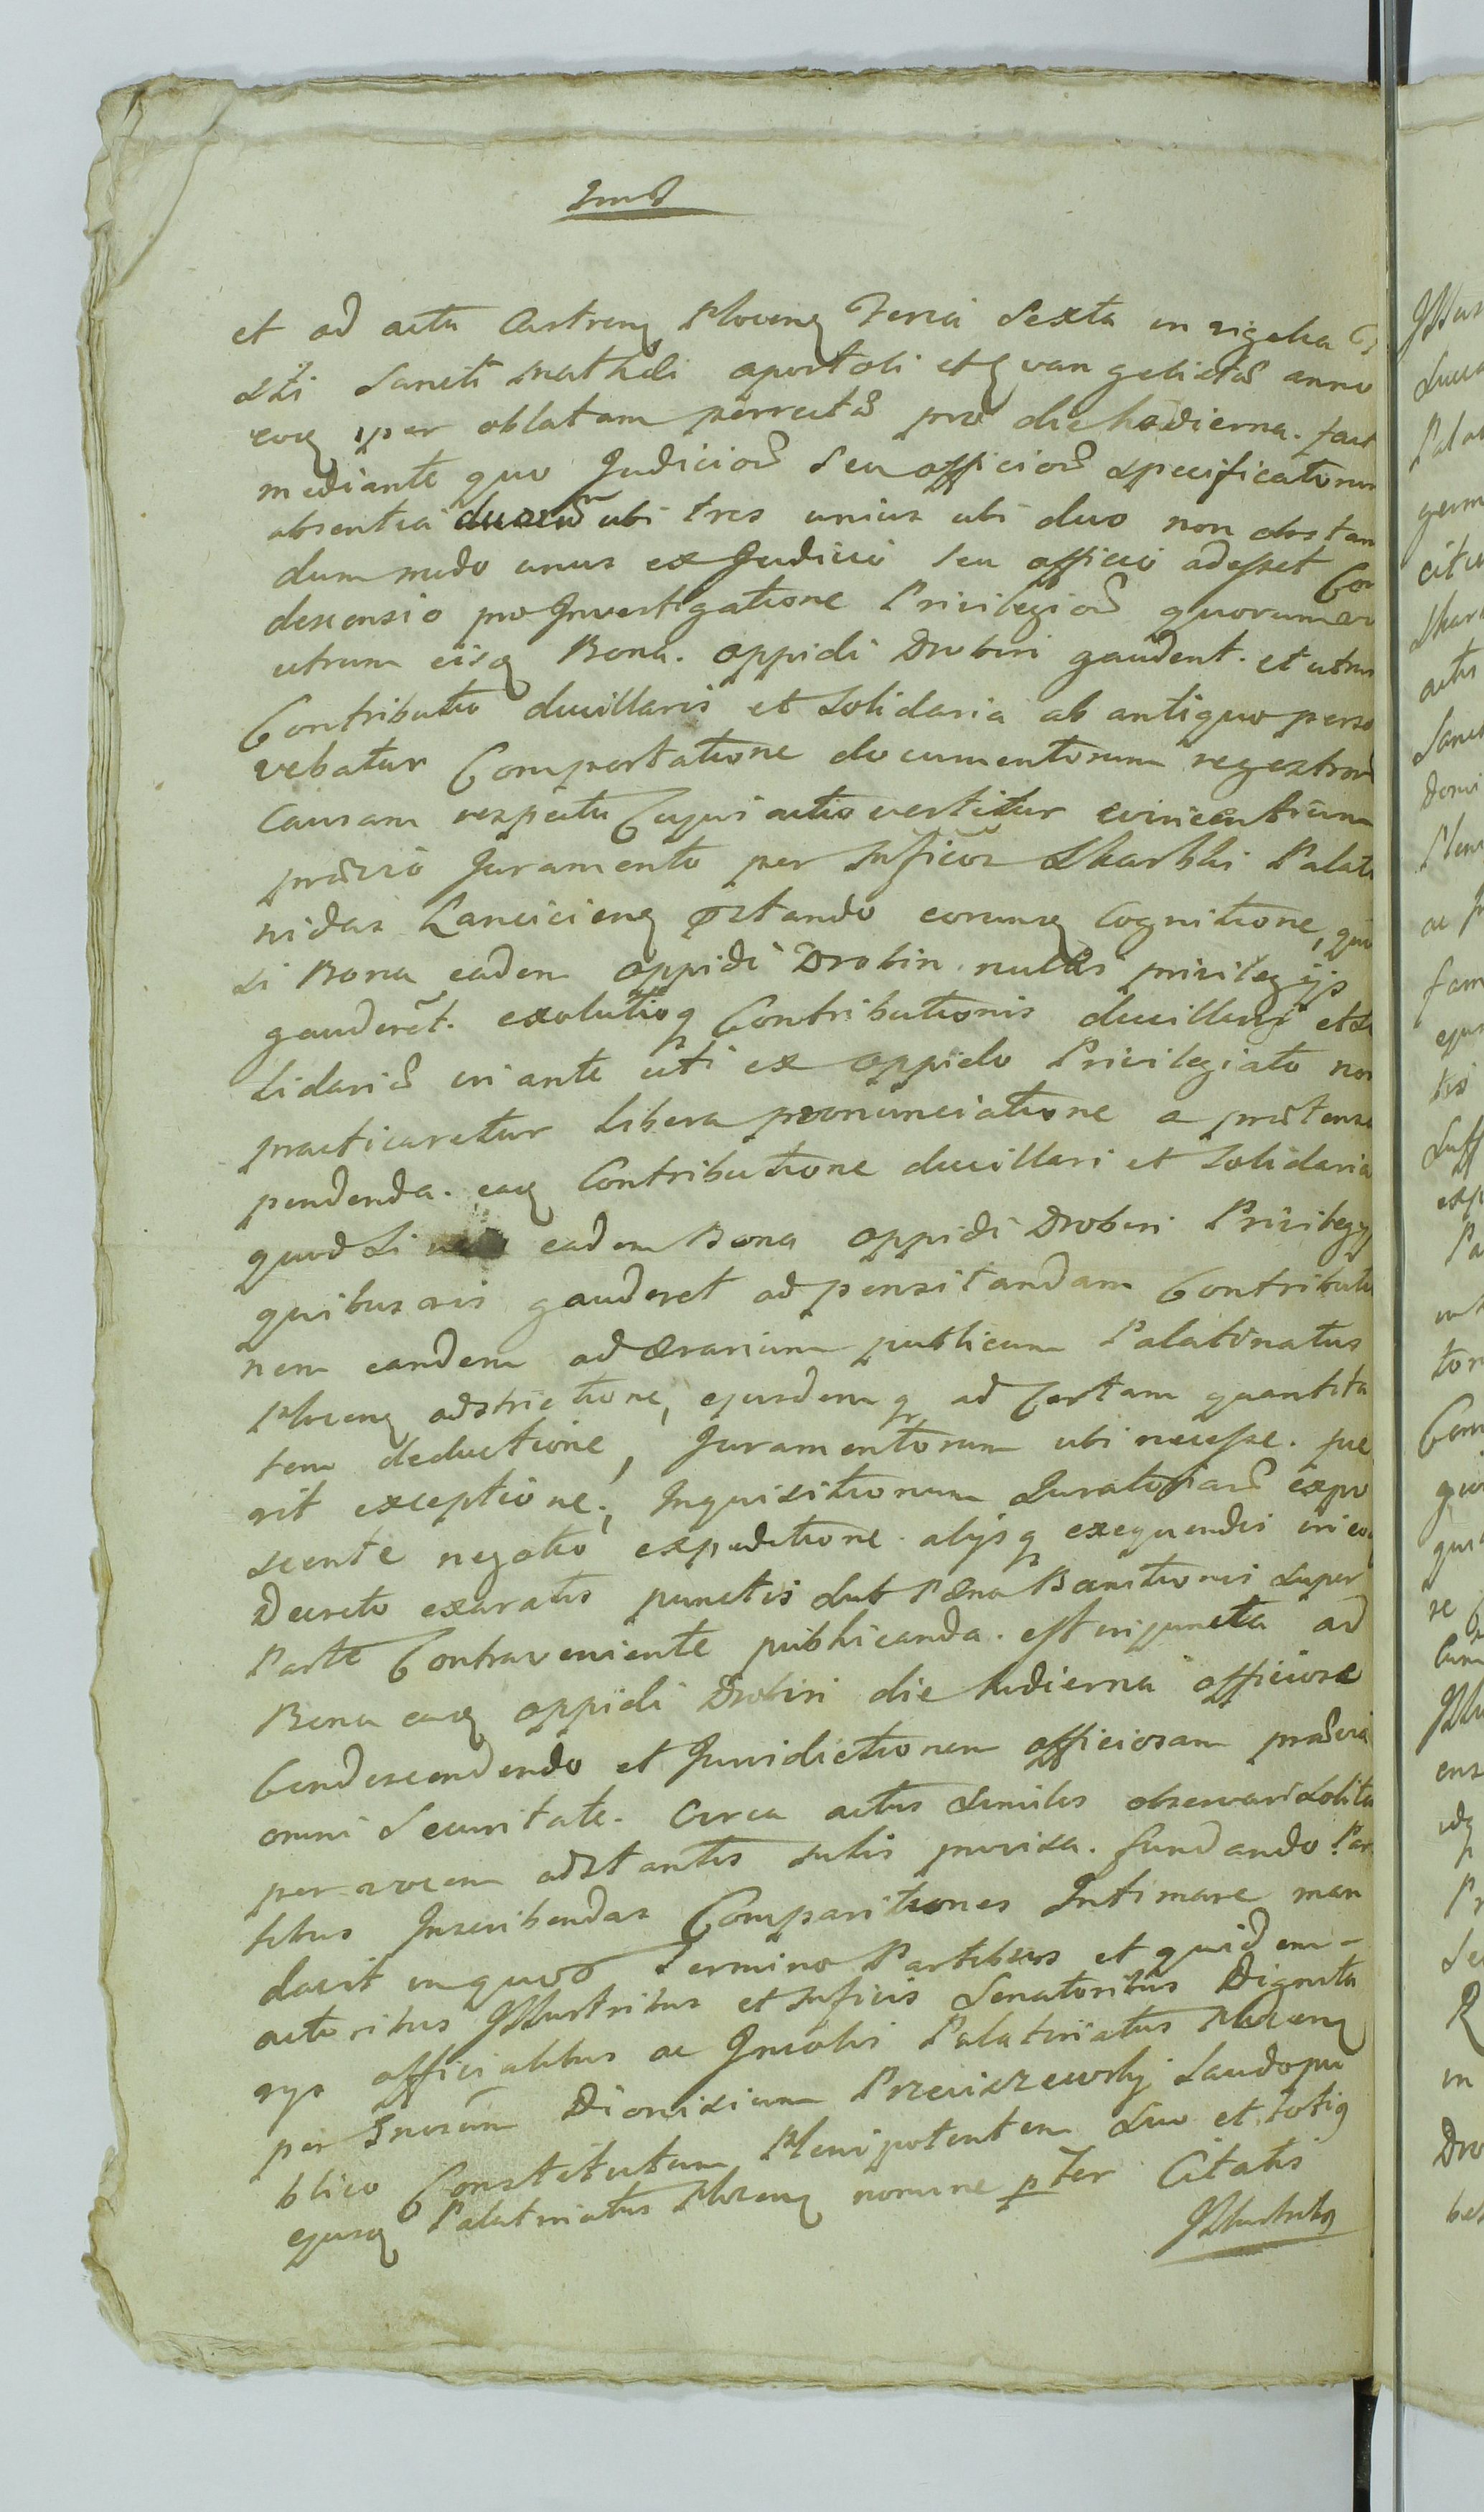 et ad acta Castren Plocen Feria Sexta in vigilia
sti Sancti Mathaei apostoli et Evangelistae anno
eoq per oblatam porrectae pro die hodierna. fact
mediante quo Judicior seu officior specificatorum
absentia duorum ubi tres unius ubi duo non obstan
dummodo unus ex Judicio seu officio adesset Con
descensio pro Investigatione Privilegior quorum
utrum eisq Bona. oppidi Drobin gaudent. et utrum
Contributio ducillaris et Solidaria ab antiquo perso
vebatur Comportatione documentorum regestror
Causam respectu Cujus actio vertitur evincentium
praevio Juramento per Mficos Skarbki Palati
nidas Lancicien praestando eorumq Cognitione, quo
si Bona eadem oppidi Drobin nullis privilegijs
gauderet. exolutioq Contributionis ducillaris et So
lidariae in ante uti ex oppido Privilegiato non
practicaretur libera pronunciatione a praetensa
pendenda. eaq Contributione ducillari et Solidaria
quod si eadem Bona oppidi Drobin Privilegijs
quibusvis gauderet ad pensitandam Contributio
nem eandem ad aerarium publicum Palatinatus
Plocen adstrictione, ejusdemq ad Certam quantita
tem deductione, Juramentorum ubi necesse. fue
rit exceptione; Inquisitionum Juratoriar expo
scente negotio expeditione. alijsq exequendis in eo
Decreto exaratis punctis sub Paena Banitionis super
Parte Contraveniente publicanda. est injuncta ad
Bona eaq oppidi Drobin die hodierna officiose
Condescendendo et Jurisdictionem officiosam praevia
omni Securitate. Circa actus similes observari solita
per vocem adstantis sibi praevisa. fundando Par
tibus Inscribendas Comparitiones Intimare man
davit in quo Termino Partibus et quidem-
actoribus Illustribus et Mficis Senatoribus Dignita
rijs officialibus ac Incolis Palatinatus Plocen
per Gnosum Dionisium Przeciszewskj Laudo pu
blico Constitutum Plenipotentem Suo et totiq
ejusq Palatinatus Plocen nomine pter Citatis
Illustribq